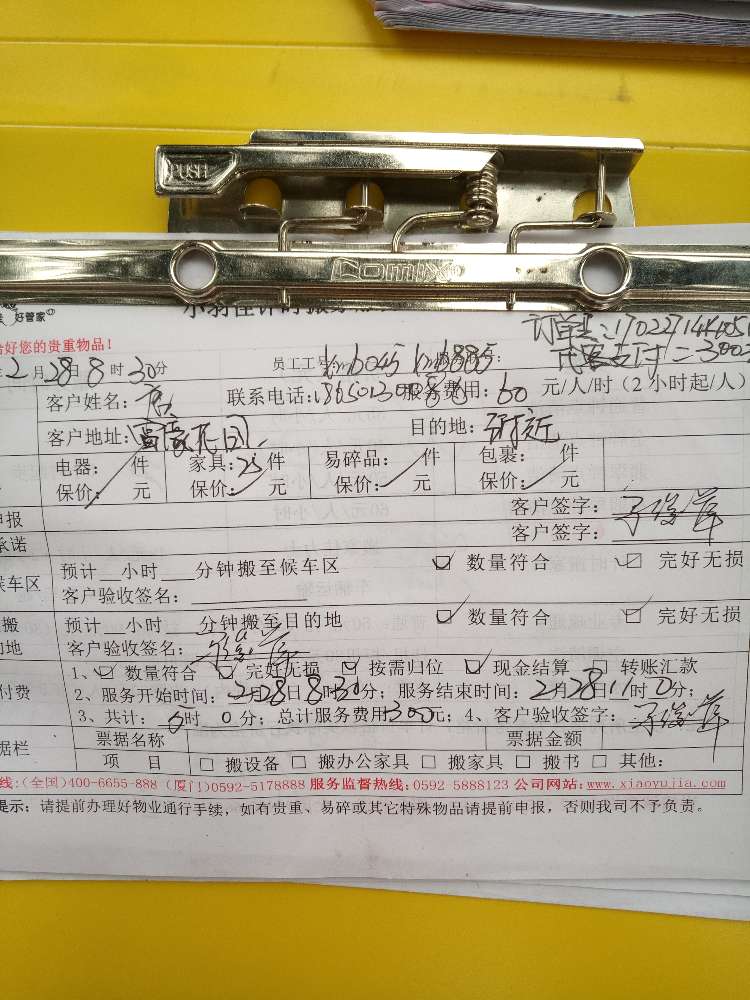 PUSH
COMIX
好管家
订单号:170227144
代客支付=300
给好您的贵重物品！
年2月28日8时30分 员工工号 6045
客户姓名： 联系电话: 服务费用：60 元/人/时（2 小时起/人）
客户地址：富豪花园 目的地：附近
电器： 件 家具：25件 易碎品： 件 包裹： 件
保价： 元 保价： 元 保价： 元 保价： 元
申报 客户签字：
承诺 客户签字：
候车区 预计__小时___分钟搬至候车区 ☑ 数量符合 ☑ 完好无损
客户验收签名：
搬 预计__小时___分钟搬至目的地 ☑ 数量符合 ☑ 完好无损
的地 客户验收签名：
1、☑ 数量符合 ☑ 完好无损 ☑ 按需归位 ☑ 现金结算 □ 转账汇款
付费 2、服务开始时间：2月28日8时30分；服务结束时间：2月28日11时0分；
3、共计： 时 0分；总计服务费用300元；4、客户验收签字：
票据名称 票据金额
据栏 项 目 □ 搬设备 □ 搬办公家具 □ 搬家具 □ 搬书 □ 其他：
线:(全国)400-6655-888 (厦门)0592-5178888 服务监督热线:0592 5888123 公司网站:www.xiaoyujia.com
提示：请提前办理好物业通行手续，如有贵重、易碎或其它特殊物品请提前申报，否则我司不予负责。